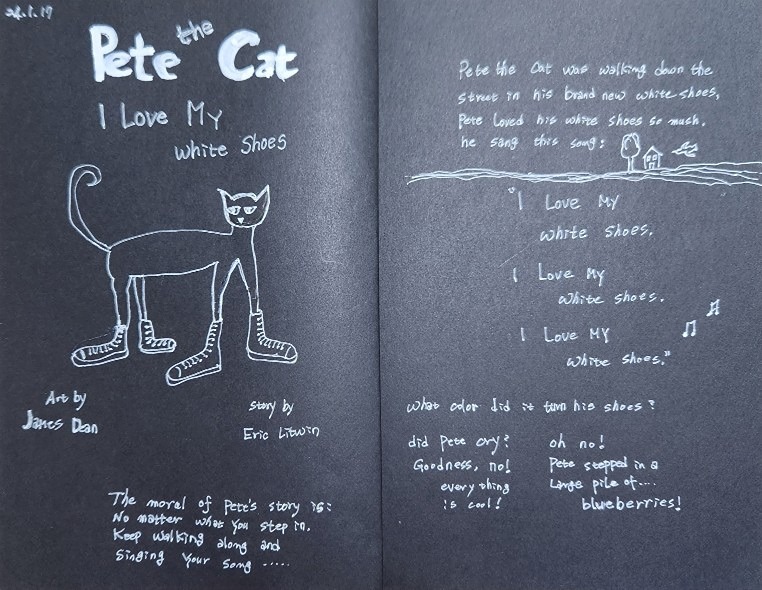 24.1.19
Pete the Cat
I Love My
white Shoes
Art by
James Dean
Story by
Eric Litwin
The moral of Pete's story is:
No matter what you step in,
Keep walking along and
Singing your song .....
Pete the Cat was walking down the
street in his brand new white shoes,
Pete Loved his white shoes so much,
he sang this song:
"I Love My
white shoes.
I Love My
white shoes.
I Love MY
white shoes."
what color did it turn his shoes?
did Pete cry?
Goodness, no!
everything
is cool!
oh no!
Pete stepped in a
Large pile of....
blueberries!